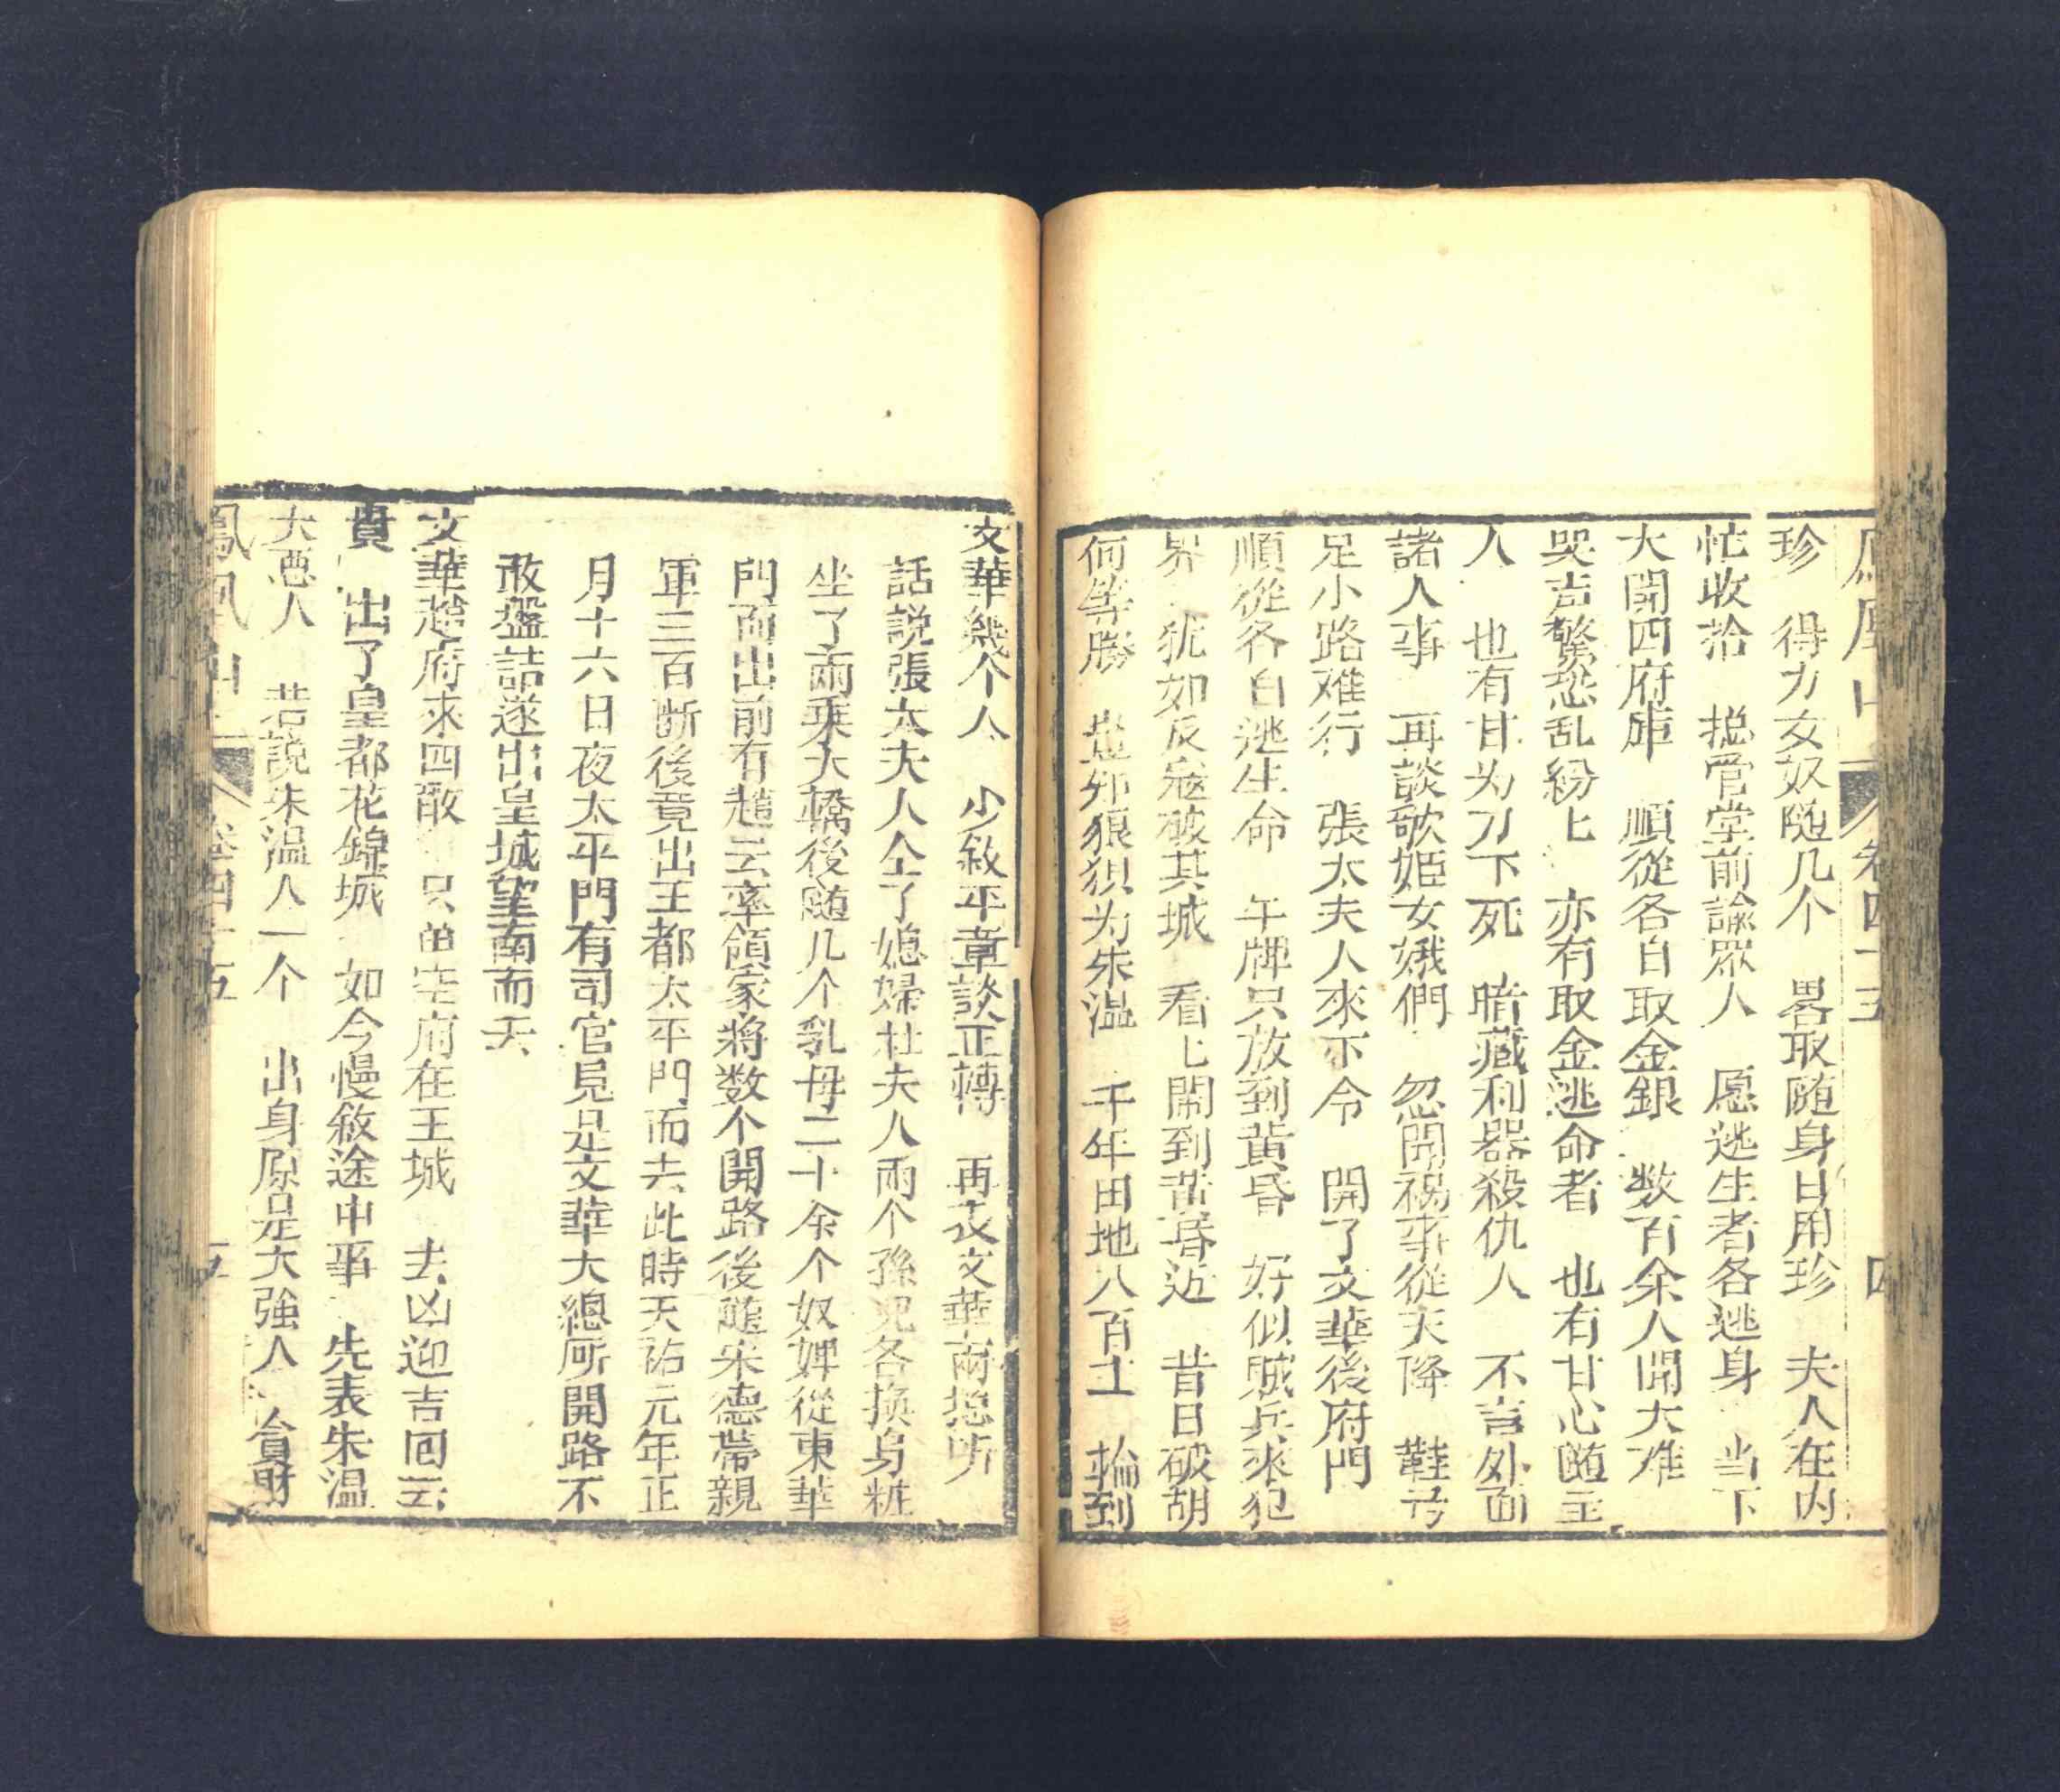 珍 得力女奴随几个 畧取随身日用珍 夫人在内
忙收拾 搃管堂前諭眾人 愿逃生者各逃身 当下
大開四府庫 順從各自取金銀 数百余人聞大难
哭声驚恐乱紛匕 亦有取金逃命者 也有甘心随主
人 也有甘为刀下死 暗藏利器殺仇人 不言外面
諸人事 再談歌姬女娥們 忽聞禍事從天降 鞋弓
足小路难行 張太夫人來下令 開了文華後府門
順從各自逃生命 午牌只放到黃昏 好似賊兵來犯
界 犹如反寇破其城 看匕鬧到黃昏近 昔日破胡
何等勝 豈邜狼狽为朱温 千年田地八百土 輪到
文華幾个人 少敘平章談正轉 再表文華南搃听
話説張太夫人仝了媳婦杜夫人両个孫兒各换身粧
坐了兩乘大轎後随几个乳母二十余个奴婢從東華
門而出前有趙云率領家將数个開路後随宋德帶親
軍三百断後竟出王都太平門而去此時天祐元年正
月十六日夜太平門有司官見是文華大總所開路不
敢盤詰遂出皇城望南而夭
文華趙府求四散 只留空府在王城 去凶迎吉囘云
貴 出了皇都花錦城 如今慢敘途中事 先表朱温
大惡人 若説朱温人一个 出身原是大強人 貪財
鳳凰山 卷四十五 五